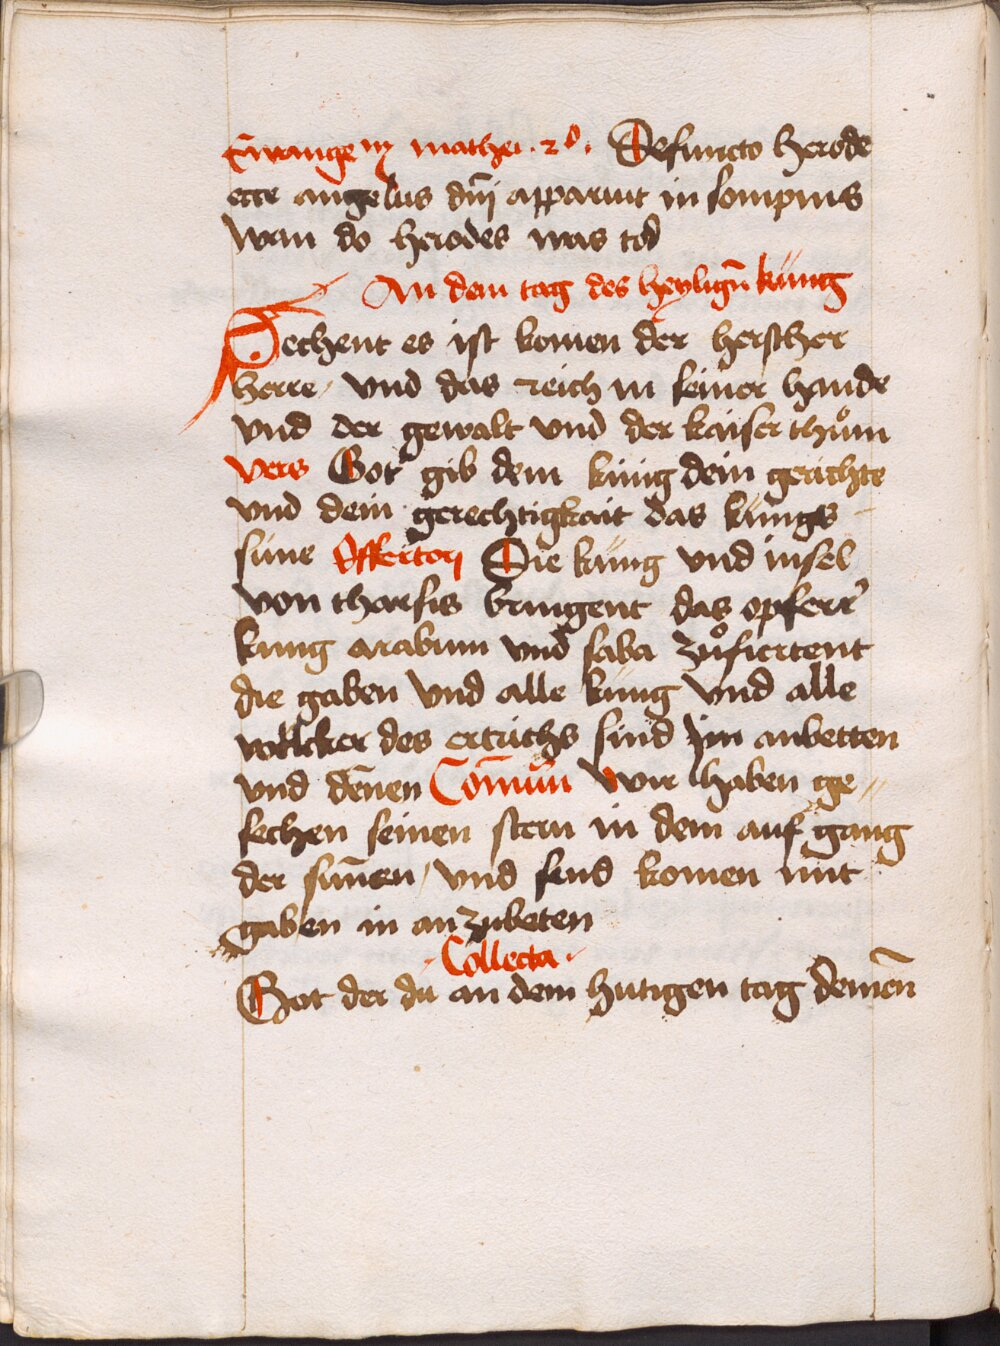 Ewangely mathei . 2º . Defuncto herode
ecce angelus dn̄i apparuit in sompnis
Wan do herodes was tod
An dem tag des heylign̄ küng
Sechent es ist komen der herscher
herre / vnd das reich in seiner hande
vnd der gewalt vnd der kaiserthuͦm
vers Got gib dem küng dein gerichte
vnd dein gerechtigkait das küngs
süne Offertori Die küng vnd insel
von tharsis bringent das opfer
küng arabum vnd saba zuͦfiertent
die gaben vnd alle küng vnd alle
völcker des ertrichs sind jm anbetten
vnd dēnen Com̄un̄ Wir haben ge //
sechen seinen stern in dem auf gang
der sun̄en / vnd send komen mit
gaben in an zubeten
Collecta
Got der du an dem hutigen tag deinen̄